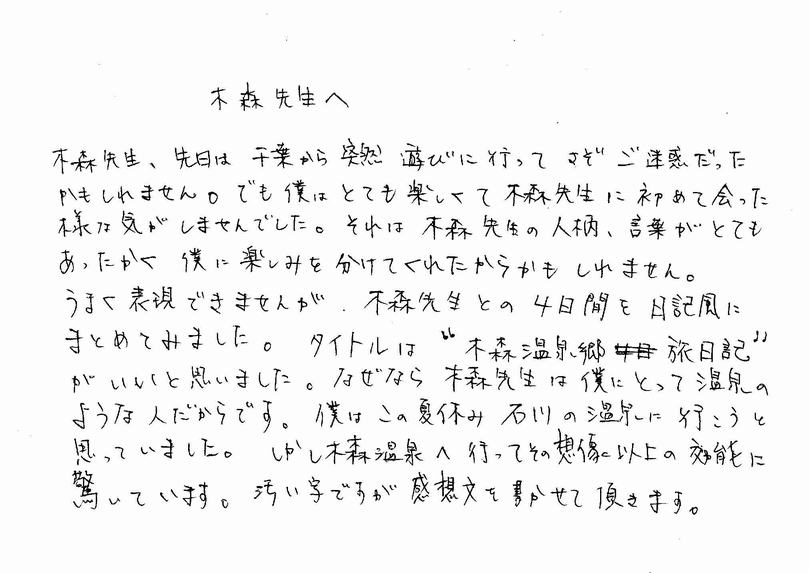 木森先生へ
木森先生、先日は 千葉から 突然 遊びに行って さぞ ご迷惑だった
かもしれません。でも僕はとても楽しくて 木森先生に初めて会った
様な気がしませんでした。それは 木森先生の人柄、言葉がとても
あったかく 僕に楽しみを分けてくれたからかも しれません。
うまく表現できませんが、木森先生との4日間を日記風に
まとめてみました。 タイトルは “木森温泉郷 旅日記”
がいいと思いました。なぜなら 木森先生は僕にとって温泉の
ような人だからです。僕はこの夏休み 石川の温泉に行こうと
思っていました。 しかし木森温泉へ行ってその想像以上の効能に
驚いています。汚い字ですが感想文を書かせて頂きます。